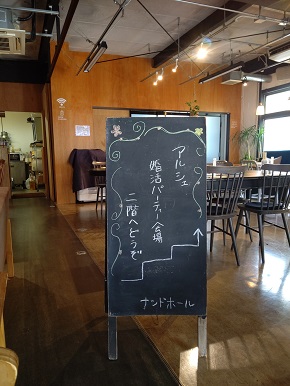 アルシェ
婚活パーティー会場
二階へどうぞ
ナンドホール